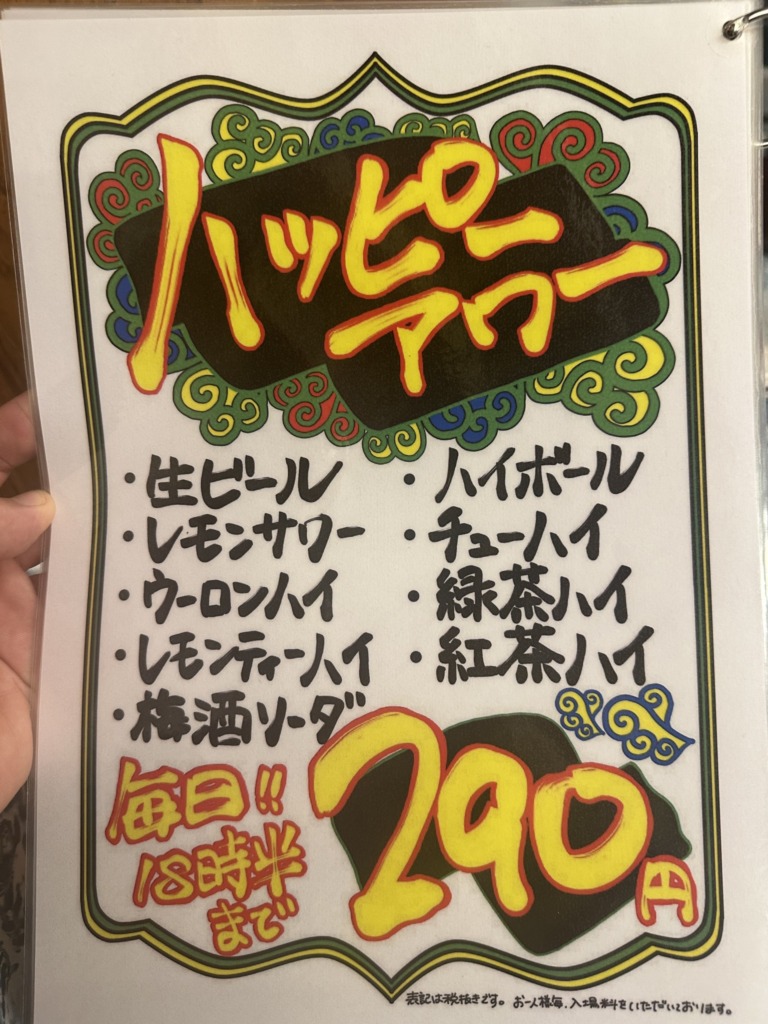 ハッピー
アワー
・生ビール
・レモンサワー
・ウーロンハイ
・レモンティーハイ
・梅酒ソーダ
・ハイボール
・チューハイ
・緑茶ハイ
・紅茶ハイ
毎日!!
18時半
まで
290円
表記は税抜きです。お一人様毎、入場料をいただいております。